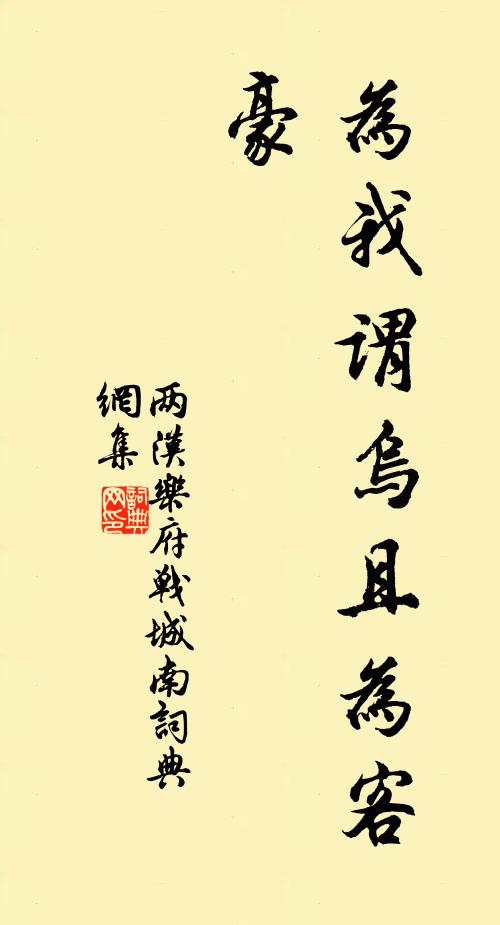 為我謂烏且為客
豪
两漢樂府戰城南詞典
網集
詞典
网印